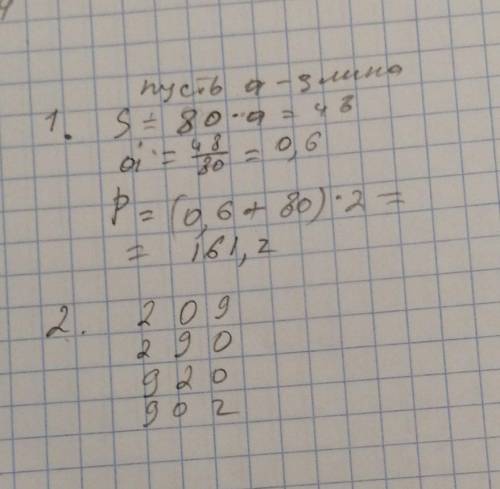 пусть а - длина
1. S = 80 · а = 48
а = 48/80 = 0,6
P = (0,6 + 80) · 2 =
= 161,2
2. 2 0 9
2 9 0
9 2 0
9 0 2